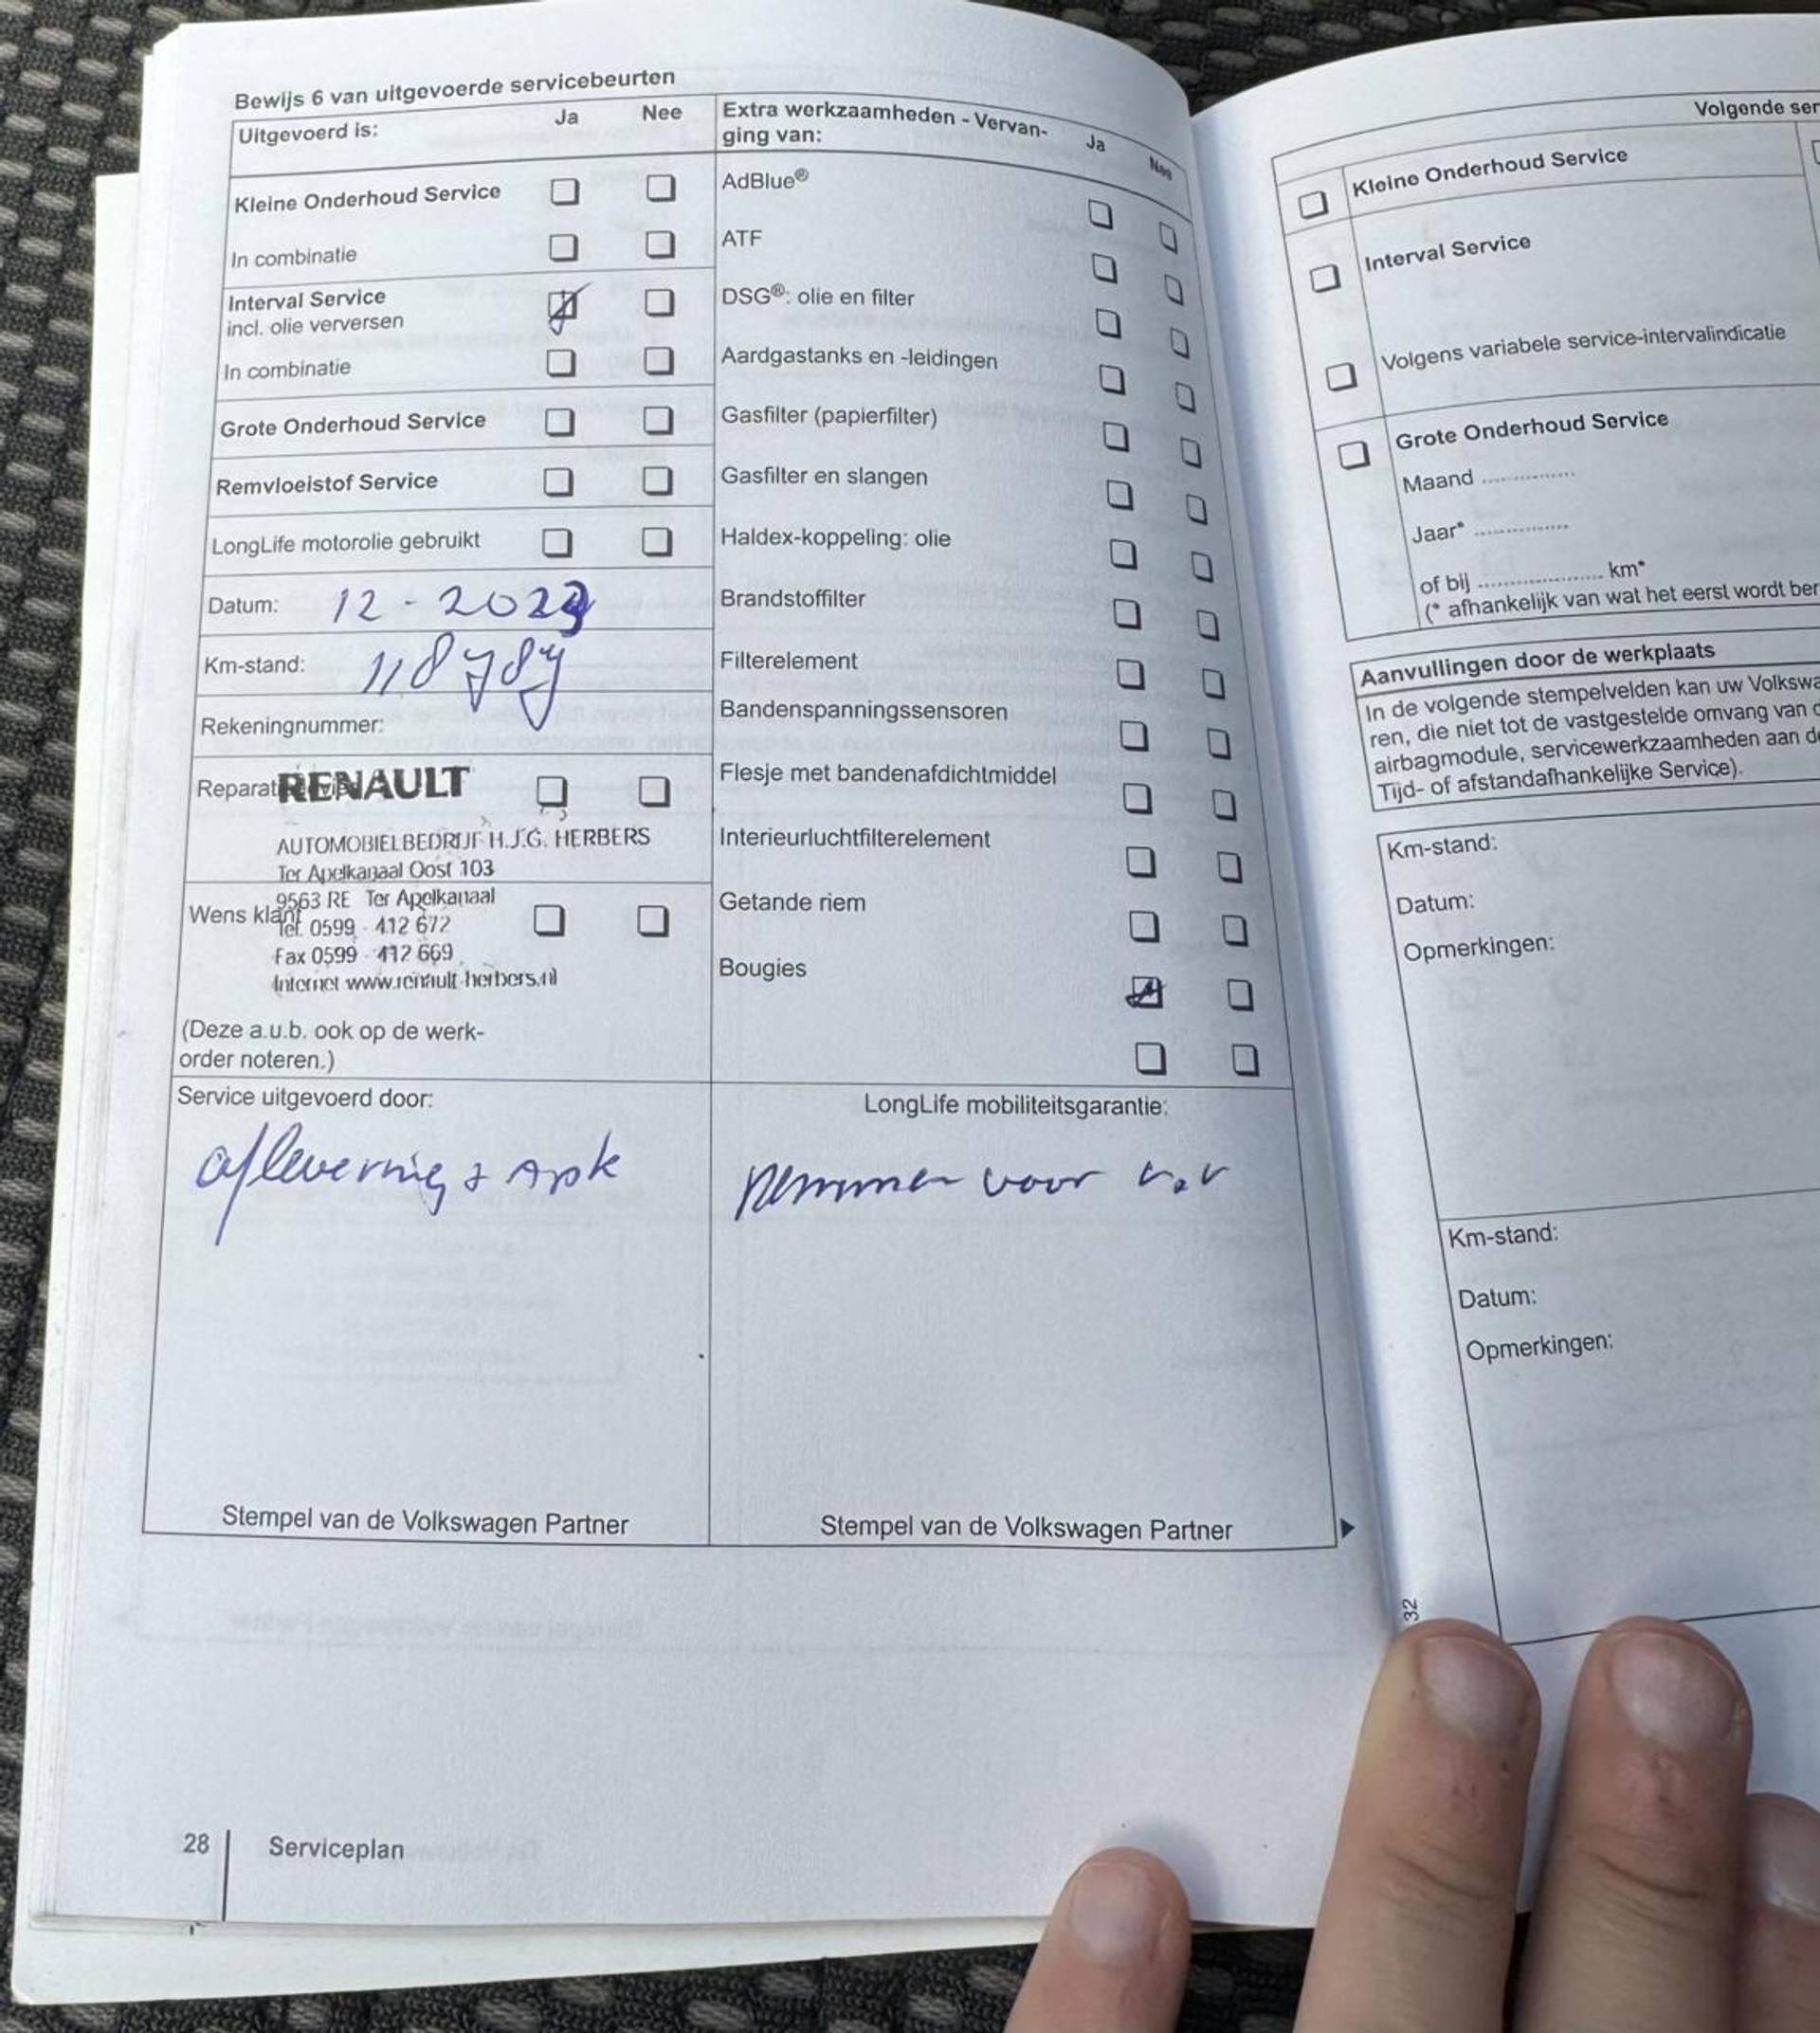 Bewijs 6 van uitgevoerde servicebeurten
Uitgevoerd is: Ja Nee
Kleine Onderhoud Service
In combinatie
Interval Service
incl. olie verversen
In combinatie
Grote Onderhoud Service
Remvloeistof Service
LongLife motorolie gebruikt
Datum: 12 - 2023
Km-stand: 118787
Rekeningnummer:
RENAULT
AUTOMOBIELBEDRIJF H.J.G. HERBERS
Ter Apelkanaal Oost 103
9563 RE Ter Apelkanaal
Wens klant
Tel. 0599 - 412 672
Fax 0599 - 412 669
Internet www.renault-herbers.nl
(Deze a.u.b. ook op de werk-
order noteren.)
Extra werkzaamheden - Vervan-
ging van: Ja Nee
AdBlue®
ATF
DSG®: olie en filter
Aardgastanks en -leidingen
Gasfilter (papierfilter)
Gasfilter en slangen
Haldex-koppeling: olie
Brandstoffilter
Filterelement
Bandenspanningssensoren
Flesje met bandenafdichtmiddel
Interieurluchtfilterelement
Getande riem
Bougies
Service uitgevoerd door:
aflevering + Apk
Stempel van de Volkswagen Partner
LongLife mobiliteitsgarantie:
remmen voor
Stempel van de Volkswagen Partner
28 Serviceplan
Volgende ser
Kleine Onderhoud Service
Interval Service
Volgens variabele service-intervalindicatie
Grote Onderhoud Service
Maand ...............
Jaar* ...............
of bij .................... km*
(* afhankelijk van wat het eerst wordt ber
Aanvullingen door de werkplaats
In de volgende stempelvelden kan uw Volkswa
ren, die niet tot de vastgestelde omvang van d
airbagmodule, servicewerkzaamheden aan de
Tijd- of afstandafhankelijke Service).
Km-stand:
Datum:
Opmerkingen:
Km-stand:
Datum:
Opmerkingen:
32